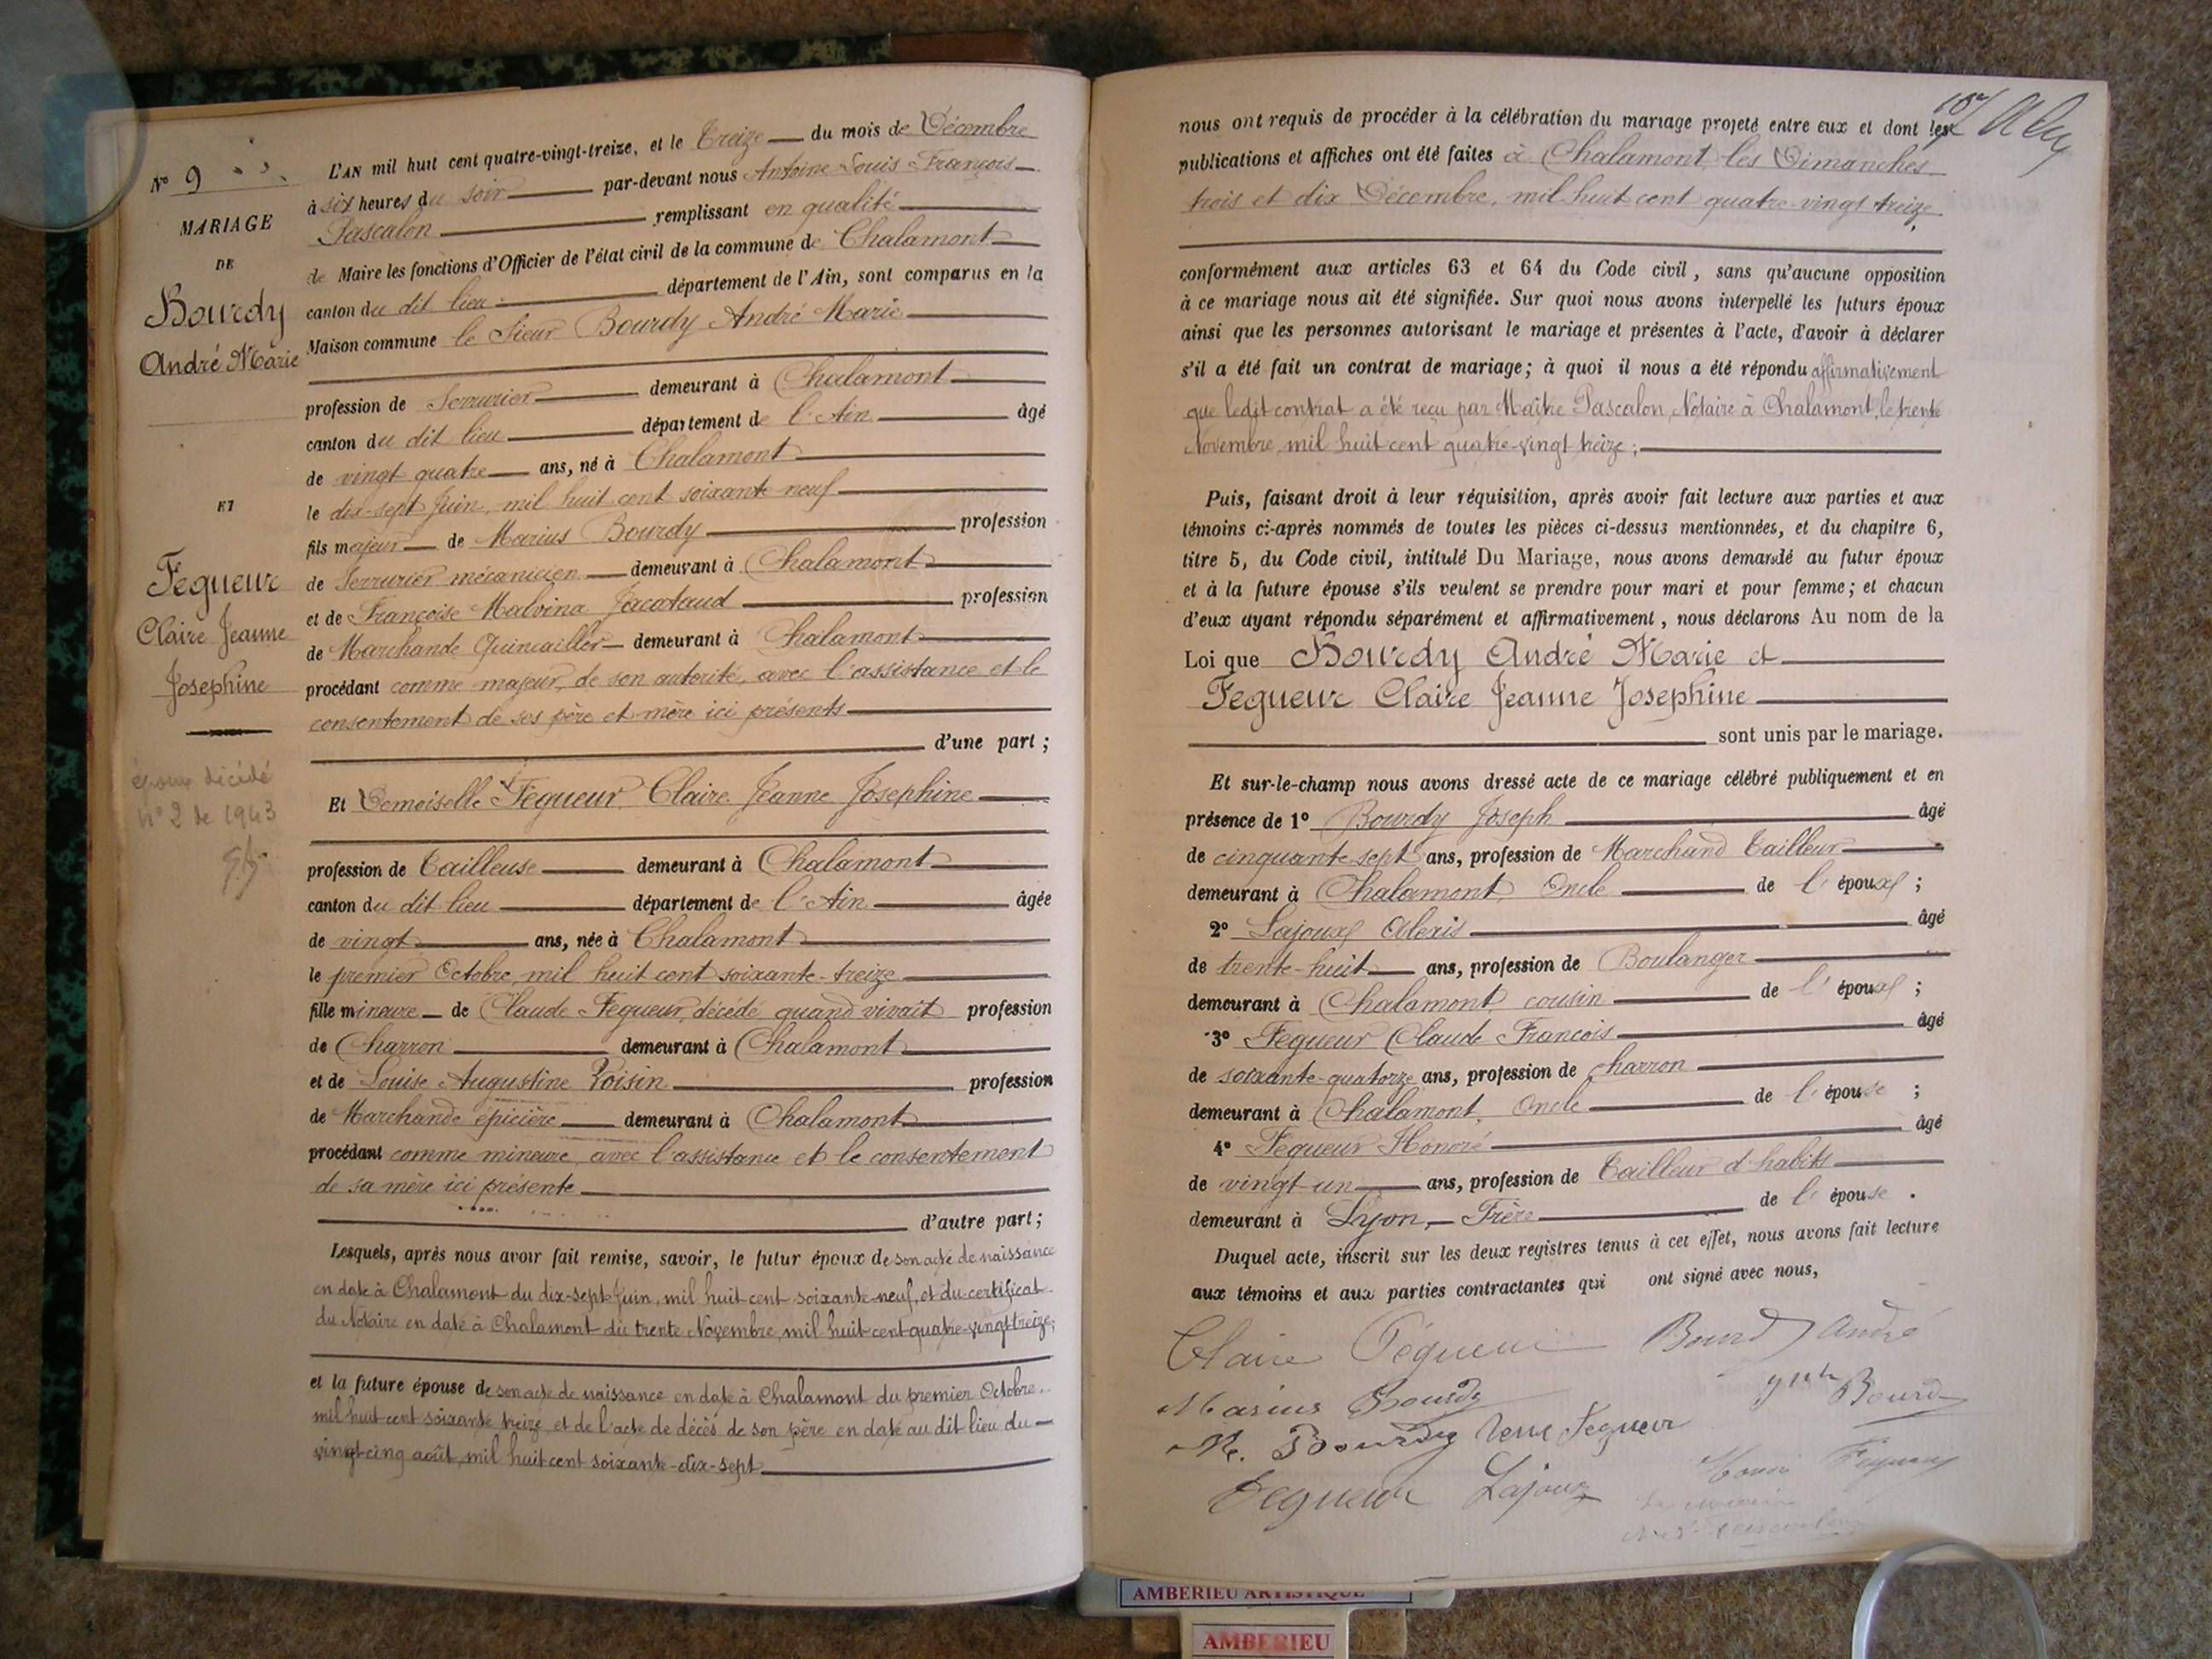 N° 9
MARIAGE
DE
Bourdy
André Marie
ET
Fegueur
Claire Jeanne
Josephine
époux décédé
n° 2 de 1943
L'AN mil huit cent quatre-vingt-treize, et le Treize du mois de Décembre
à six heures du soir par-devant nous Antoine Louis François
Pascalon remplissant en qualité
de Maire les fonctions d'Officier de l'état civil de la commune de Chalamont
canton du dit lieu département de l'Ain, sont comparus en la
Maison commune le Sieur Bourdy André Marie
profession de Serrurier demeurant à Chalamont
canton du dit lieu département de l'Ain âgé
de vingt quatre ans, né à Chalamont
le dix-sept Juin, mil huit cent soixante neuf
fils majeur de Marius Bourdy profession
de Serrurier mécanicien demeurant à Chalamont
et de Françoise Malvina Jacotaud profession
de Marchande Quincailler demeurant à Chalamont
procédant comme majeur, de son autorité, avec l'assistance et le
consentement de ses père et mère ici présents
d'une part ;
Et Demoiselle Fegueur Claire Jeanne Josephine
profession de Tailleuse demeurant à Chalamont
canton du dit lieu département de l'Ain âgée
de vingt ans, née à Chalamont
le premier Octobre, mil huit cent soixante-treize
fille mineure de Claude Fegueur, décédé, quand vivait profession
de Charron demeurant à Chalamont
et de Louise Augustine Voisin profession
de Marchande épicière demeurant à Chalamont
procédant comme mineure, avec l'assistance et le consentement
de sa mère ici présente
d'autre part ;
Lesquels, après nous avoir fait remise, savoir, le futur époux de son acte de naissance
en date à Chalamont du dix-sept Juin, mil huit cent soixante-neuf, et du certificat
du Notaire en date à Chalamont du trente Novembre, mil huit cent quatre-vingt-treize,
et la future épouse de son acte de naissance en date à Chalamont du premier Octobre
mil huit cent soixante treize, et de l'acte de décès de son père en date au dit lieu du
vingt-cinq août, mil huit cent soixante-dix-sept
107
nous ont requis de procéder à la célébration du mariage projeté entre eux et dont les
publications et affiches ont été faites à Chalamont les Dimanches
trois et dix Décembre, mil huit cent quatre-vingt treize,
conformément aux articles 63 et 64 du Code civil, sans qu'aucune opposition
à ce mariage nous ait été signifiée. Sur quoi nous avons interpellé les futurs époux
ainsi que les personnes autorisant le mariage et présentes à l'acte, d'avoir à déclarer
s'il a été fait un contrat de mariage ; à quoi il nous a été répondu affirmativement
que ledit contrat a été reçu par Maître Pascalon, Notaire à Chalamont, le trente
Novembre, mil huit cent quatre-vingt treize ;
Puis, faisant droit à leur réquisition, après avoir fait lecture aux parties et aux
témoins ci-après nommés de toutes les pièces ci-dessus mentionnées, et du chapitre 6,
titre 5, du Code civil, intitulé Du Mariage, nous avons demandé au futur époux
et à la future épouse s'ils veulent se prendre pour mari et pour femme ; et chacun
d'eux ayant répondu séparément et affirmativement, nous déclarons Au nom de la
Loi que Bourdy André Marie et
Fegueur Claire Jeanne Josephine
sont unis par le mariage.
Et sur-le-champ nous avons dressé acte de ce mariage célébré publiquement et en
présence de 1° Bourdy Joseph âgé
de cinquante sept ans, profession de Marchand Tailleur
demeurant à Chalamont, Oncle de l'époux ;
2° Lajoux Alexis âgé
de trente-huit ans, profession de Boulanger
demeurant à Chalamont, cousin de l'époux ;
3° Fegueur Claude François âgé
de soixante-quatorze ans, profession de charron
demeurant à Chalamont, Oncle de l'épouse ;
4° Fegueur Honoré âgé
de vingt-un ans, profession de Tailleur d'habits
demeurant à Lyon, Frère de l'épouse .
Duquel acte, inscrit sur les deux registres tenus à cet effet, nous avons fait lecture
aux témoins et aux parties contractantes qui ont signé avec nous,
Claire Fégueur Bourdy André
Marius Bourdy Bourdy
M. Bourdy Veuve Fegueur
Fegueur Lajoux Honoré Fegueur
AMBERIEU ARTISTIQUE
AMBERIEU